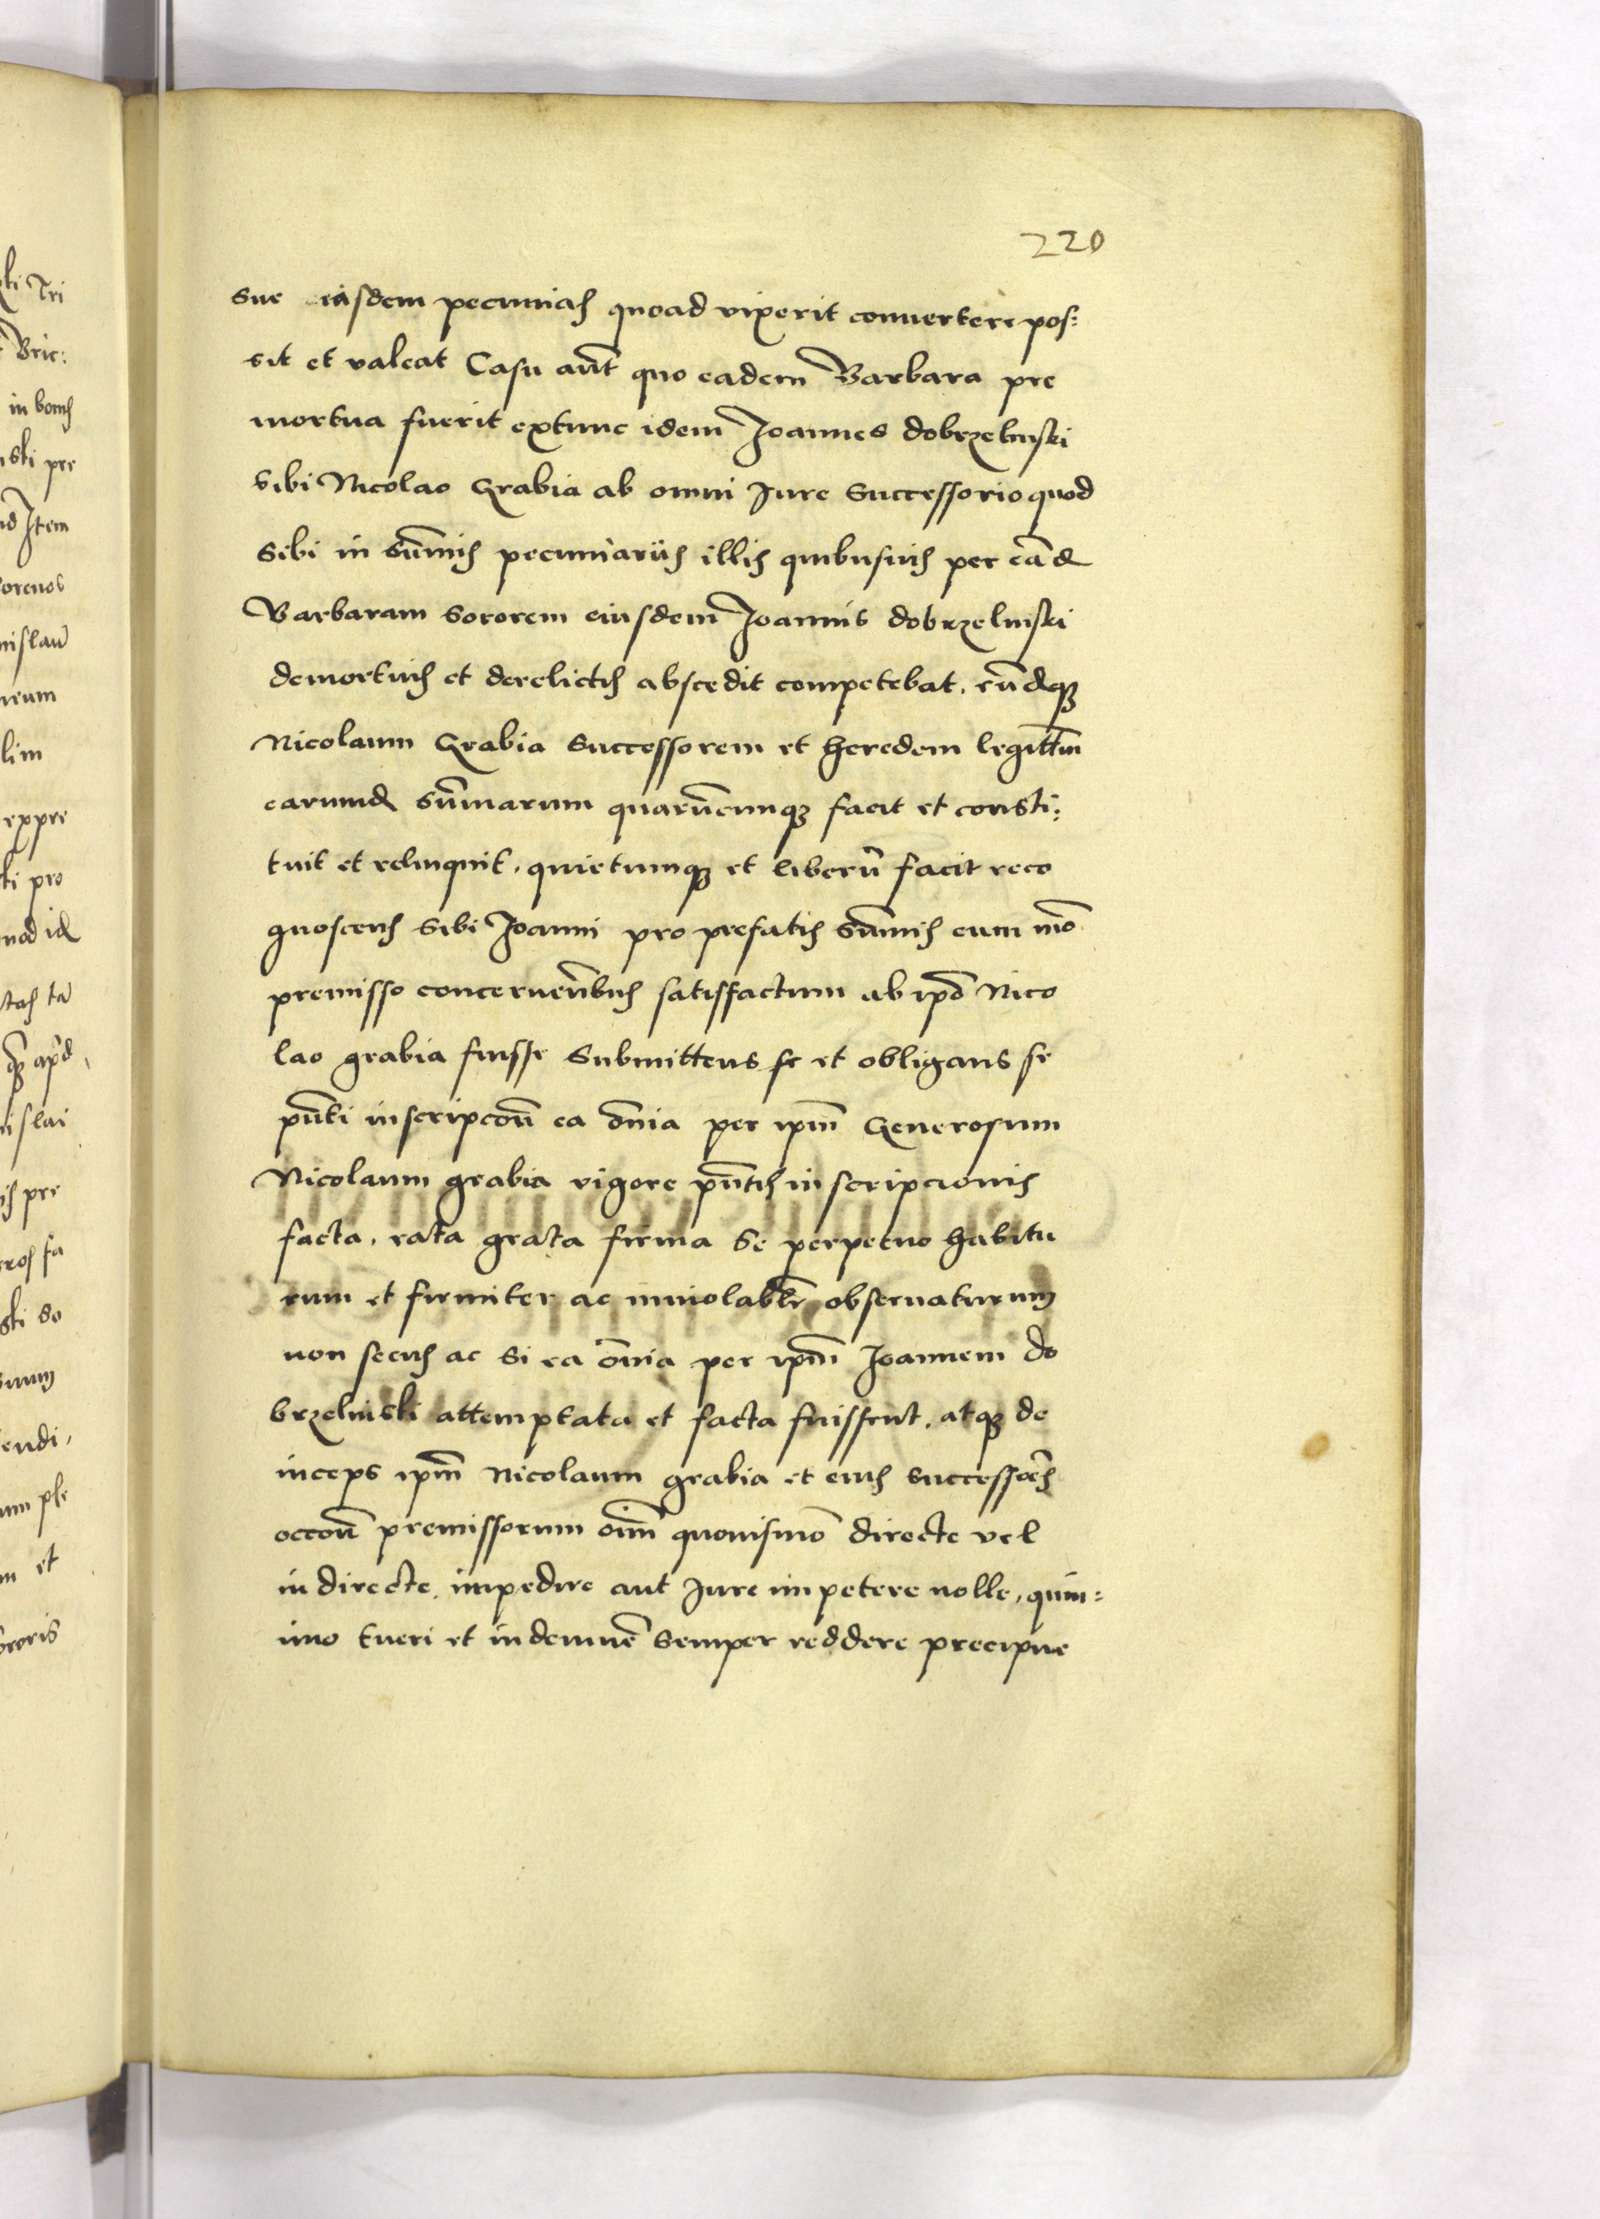 220
sue easdem pecunias quoad vixerit conuertere pos:
sit et valeat Casu aũt quo eadem Barbara pre
mortua fuerit extunc idem Joannes dobrzelinski
sibi Nicolao Grabia ab omni Jure Successorio quod
sibi in sũmis pecuniariis illis quibusuis per eãd
Barbaram sororem eiusdem Joannis dobrzelinski
demortuis et derelictis abscedit competebat, eũdqȝ
Nicolaum Grabia Successorem et heredem legittĩm
earumd sũmarum quarũcunqȝ facit et consti:
tuit et relinquit, quietumqȝ et liberũ facit reco
gnoscens sibi Joanni pro prefatis sũmis eum mõ
premisso concernẽtibus satisfactum ab ipõ Nico
lao grabia fuisse Submittens se et obligans se
pñti inscripcoñ ea õnia per ipm̃ Generosum
Nicolaum grabia vigore pñtis inscripcionis
facta, rata grata firma se perpetuo habitu
rum et firmiter ac inuiolablr̃ obseruaturum
non secus ac si ea õnia per ipm̃ Joannem do
brzelinski attemptata et facta fuissent, atqȝ de
inceps ipm̃ Nicolaum grabia et eius successor̃es
occoñ premissorum oĩm quouismõ directe vel
indirecte, impedire aut Jure impetere nolle, quin:
imo tueri et indemnẽ semper reddere precipue